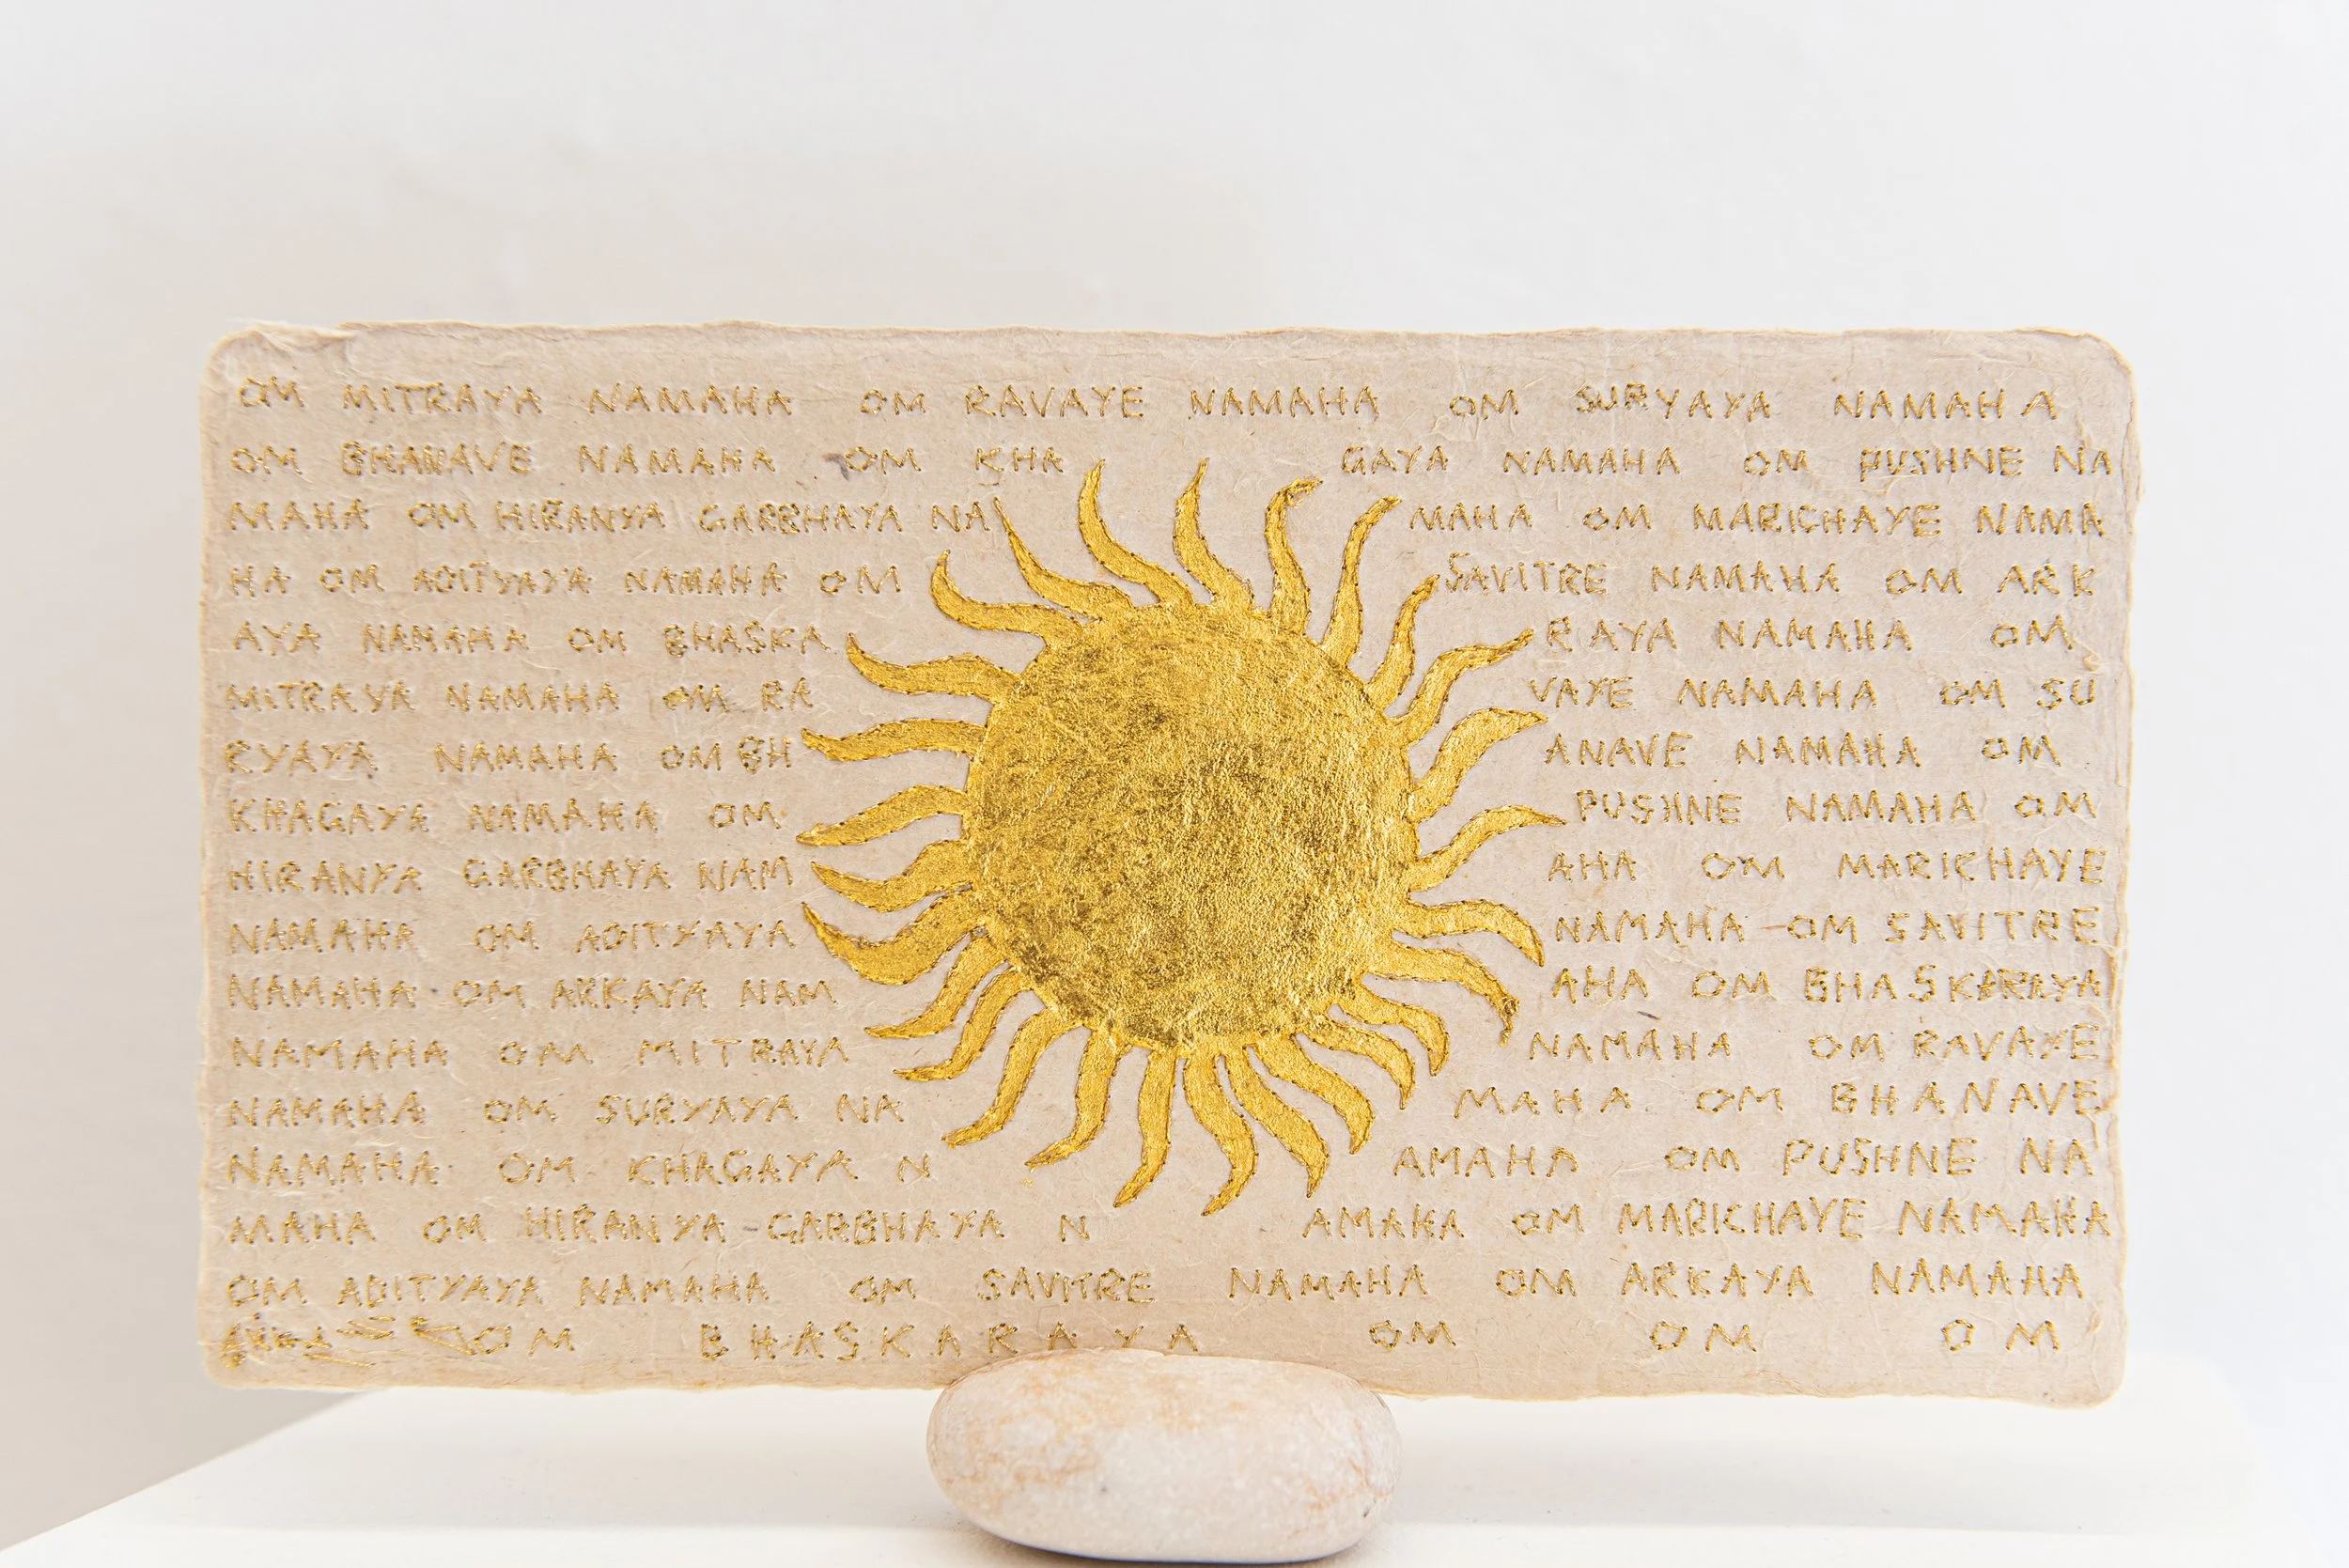 OM MITRAYA NAMAHA OM RAVAYE NAMAHA OM SURYAYA NAMAHA
OM BHANAVE NAMAHA OM KHA GAYA NAMAHA OM PUSHNE NA
MAHA OM HIRANYA GARBHAYA NA MAHA OM MARICHAYE NAMA
HA OM ADITYAYA NAMAHA OM SAVITRE NAMAHA OM ARK
AYA NAMAHA OM BHASKA RAYA NAMAHA OM
MITRAYA NAMAHA OM RA VAYE NAMAHA OM SU
RYAYA NAMAHA OM BH ANAVE NAMAHA OM
KHAGAYA NAMAHA OM PUSHNE NAMAHA OM
HIRANYA GARBHAYA NAM AHA OM MARICHAYE
NAMAHA OM ADITYAYA NAMAHA OM SAVITRE
NAMAHA OM ARKAYA NAM AHA OM BHASKARAYA
NAMAHA OM MITRAYA NAMAHA OM RAVAYE
NAMAHA OM SURYAYA NA MAHA OM BHANAVE
NAMAHA OM KHAGAYA N AMAHA OM PUSHNE NA
MAHA OM HIRANYA GARBHAYA N AMAHA OM MARICHAYE NAMAHA
OM ADITYAYA NAMAHA OM SAVITRE NAMAHA OM ARKAYA NAMAHA
OM BHASKARAYA OM OM OM